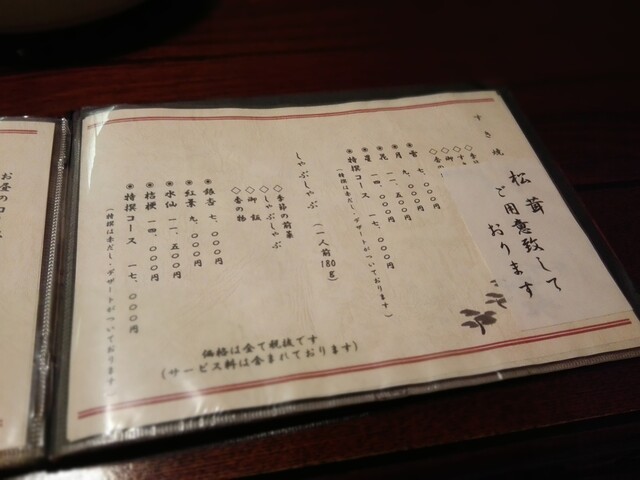 松茸
ご用意致して
おります
すき焼
◇季の
◇御
◇香の
◉雪 七、〇〇〇円
◉月 九、〇〇〇円
◉花 一一、五〇〇円
◉星 一四、〇〇〇円
◉特撰コース 一七、〇〇〇円
(特撰は赤だし・デザートがついております)
しゃぶしゃぶ (一人前180g)
◇季節の前菜
◇しゃぶしゃぶ
◇御飯
◇香の物
◉銀杏 七、〇〇〇円
◉紅葉 九、〇〇〇円
◉水仙 一一、五〇〇円
◉桔梗 一四、〇〇〇円
◉特撰コース 一七、〇〇〇円
(特撰は赤だし・デザートがついております)
価格は全て税抜です
(サービス料は含まれております)
お昼のコース